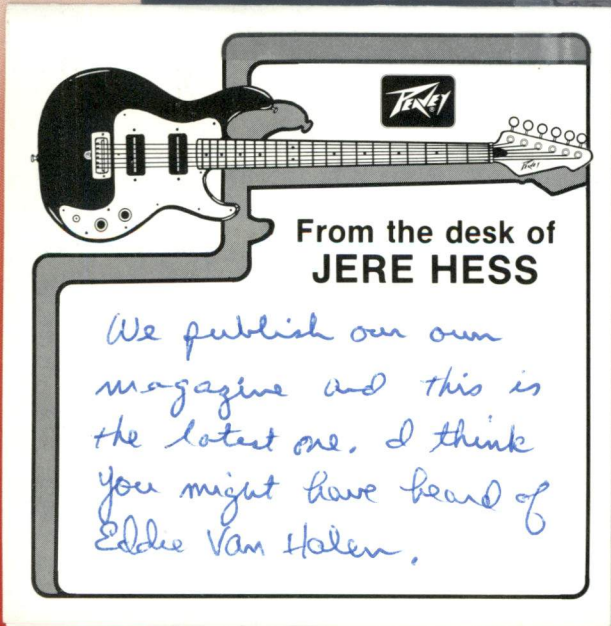 PEAVEY
PEAVEY
From the desk of
JERE HESS
We publish our own
magazine and this is
the latest one. I think
you might have heard of
Eddie Van Halen.